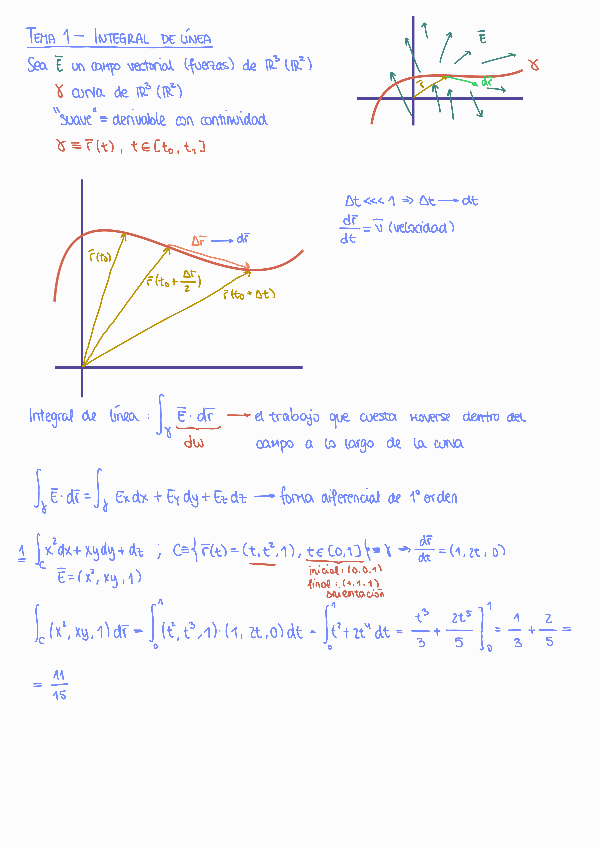 TEMA 1 — INTEGRAL DE LÍNEA
Sea E̅ un campo vectorial (fuerzas) de ℝ³ (ℝ²)
γ curva de ℝ³ (ℝ²)
"suave" = derivable con continuidad
γ ≡ r̅(t), t ∈ [t₀, t₁]
E̅
γ
r̅
dr̅
Δt <<< 1 ⇒ Δt → dt
dr̅/dt = v̅ (velocidad)
Δr̅ → dr̅
r̅(t₀)
r̅(t₀ + Δt/2)
r̅(t₀ + Δt)
Integral de línea : ∫_γ E̅ · dr̅ → el trabajo que cuesta moverse dentro del
dw campo a lo largo de la curva
∫_γ E̅ · dr̅ = ∫_γ Ex dx + Ey dy + Ez dz → forma diferencial de 1º orden
1 ∫_C x² dx + xy dy + dz ; C ≡ { r̅(t) = (t, t², 1), t ∈ [0,1] } ≡ γ → dr̅/dt = (1, 2t, 0)
E̅ = (x², xy, 1)
inicial : (0,0,1)
final : (1,1,1)
orientación
∫_C (x², xy, 1) dr̅ = ∫₀¹ (t², t³, 1) · (1, 2t, 0) dt = ∫₀¹ t² + 2t⁴ dt = t³/3 + 2t⁵/5 ]₀¹ = 1/3 + 2/5 =
= 11/15